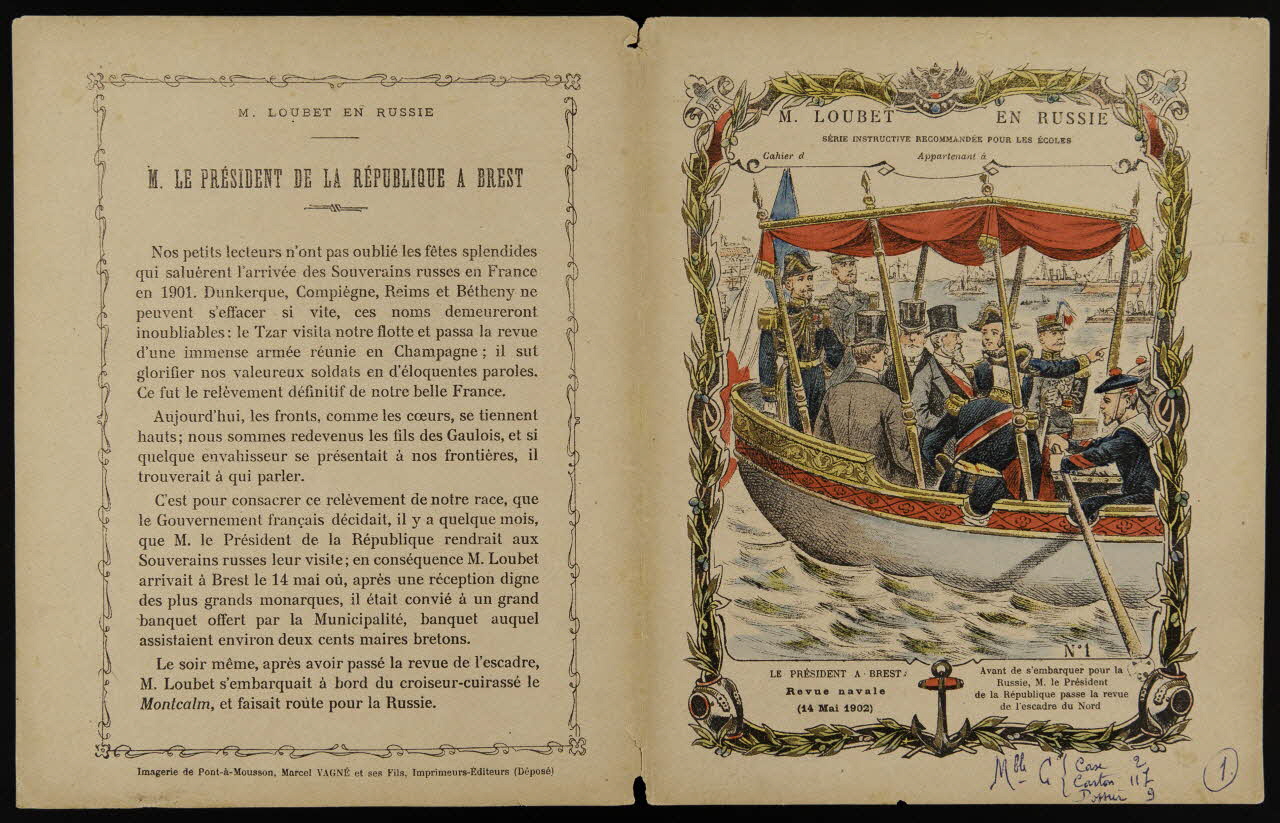 M. LOUBET EN RUSSIE
M. LE PRÉSIDENT DE LA RÉPUBLIQUE A BREST
Nos petits lecteurs n'ont pas oublié les fêtes splendides
qui saluèrent l'arrivée des Souverains russes en France
en 1901. Dunkerque, Compiègne, Reims et Bétheny ne
peuvent s'effacer si vite, ces noms demeureront
inoubliables : le Tzar visita notre flotte et passa la revue
d'une immense armée réunie en Champagne ; il sut
glorifier nos valeureux soldats en d'éloquentes paroles.
Ce fut le relèvement définitif de notre belle France.
Aujourd'hui, les fronts, comme les cœurs, se tiennent
hauts ; nous sommes redevenus les fils des Gaulois, et si
quelque envahisseur se présentait à nos frontières, il
trouverait à qui parler.
C'est pour consacrer ce relèvement de notre race, que
le Gouvernement français décidait, il y a quelque mois,
que M. le Président de la République rendrait aux
Souverains russes leur visite ; en conséquence M. Loubet
arrivait à Brest le 14 mai où, après une réception digne
des plus grands monarques, il était convié à un grand
banquet offert par la Municipalité, banquet auquel
assistaient environ deux cents maires bretons.
Le soir même, après avoir passé la revue de l'escadre,
M. Loubet s'embarquait à bord du croiseur-cuirassé le
Montcalm, et faisait route pour la Russie.
Imagerie de Pont-à-Mousson, Marcel VAGNÉ et ses Fils, Imprimeurs-Éditeurs (Déposé)
RF
RF
M. LOUBET EN RUSSIE
SÉRIE INSTRUCTIVE RECOMMANDÉE POUR LES ÉCOLES
Cahier d Appartenant à
N°1
LE PRÉSIDENT A BREST
Revue navale
(14 Mai 1902)
Avant de s'embarquer pour la
Russie, M. le Président
de la République passe la revue
de l'escadre du Nord
Mble C { Case 2
Carton 117
Dossier 9
1.